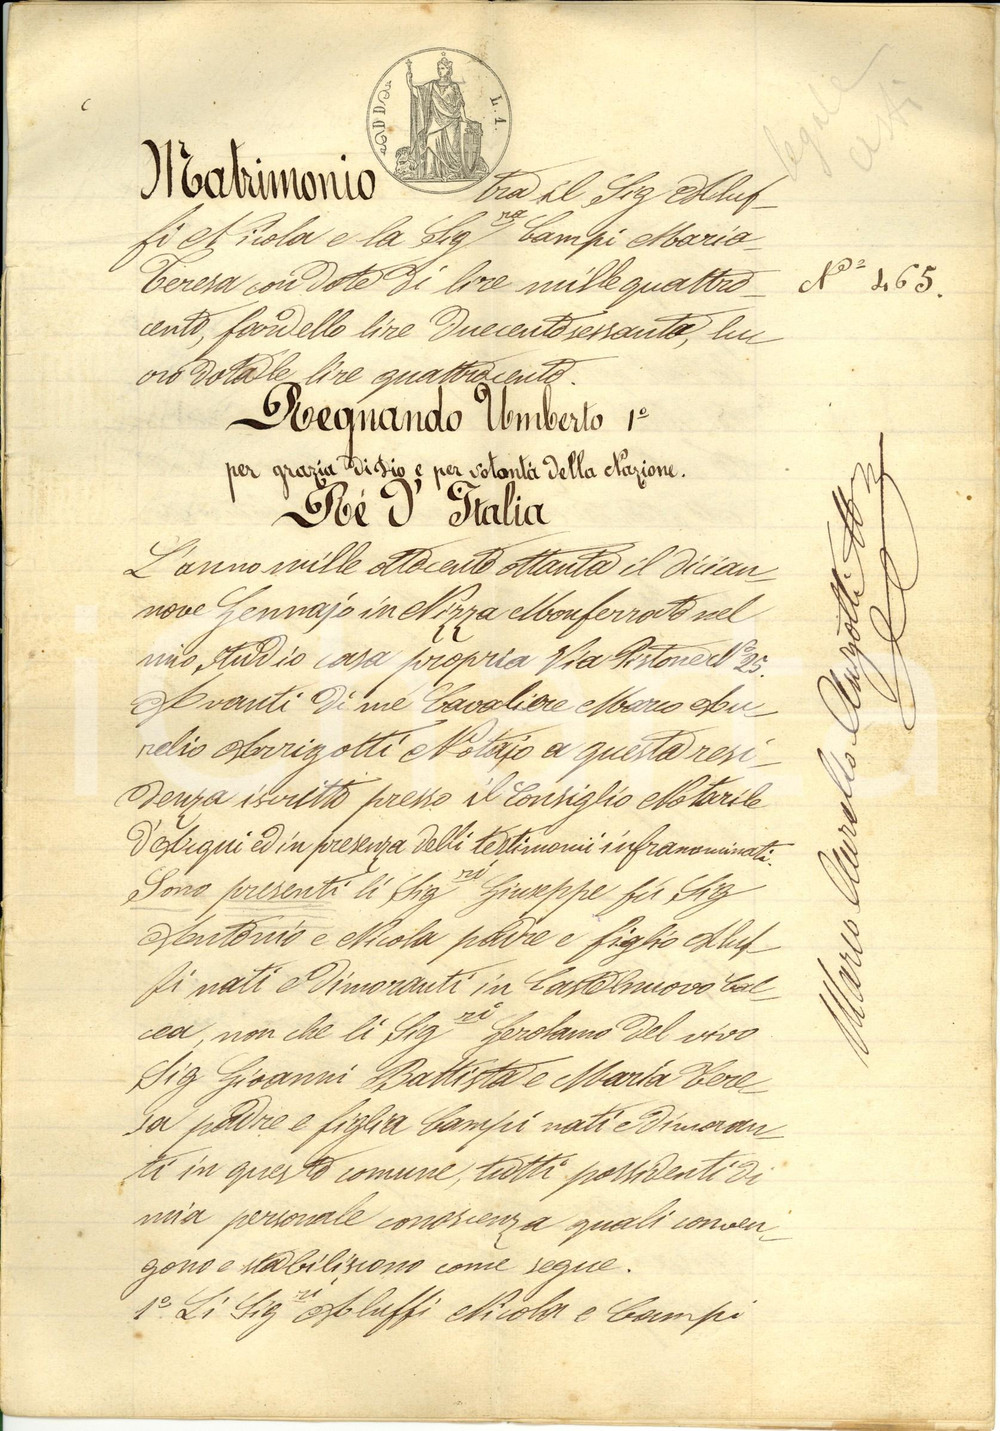 L. 1.
Matrimonio tra il Sig Aluf-
fi Nicola e la Sig.ra Campi Maria
Teresa con dote di lire mille quattro-
cento, fardello lire duecentosessanta, lu
cro dotale lire quattrocento.
N° 465.
Regnando Umberto 1°
per grazia di Dio e per volontà della Nazione.
Ré d' Italia
L'anno mille ottocento ottanta il dician-
nove Gennajo in Nizza Monferrato nel
mio studio casa propria Via Pistone N° 25.
Avanti di me Cavaliere Marco Au-
relio Arrigotti Notajo a questa resi-
denza iscritto presso il Consiglio Notarile
d'Acqui ed in presenza delli testimonii infranominati.
Sono presenti li Sig.ri Giuseppe fù Sig
Antonio e Nicola padre e figlio Aluf
fi nati e dimoranti in Castelnuovo Cal-
cea, non che li Sig.ri Gerolamo del vivo
Sig Giovanni Battista e Maria Tere-
sa padre e figlia Campi nati e dimoran-
ti in questo comune, tutti possidenti di
mia personale conoscenza quali conven-
gono e stabiliscono come segue.
1° Li Sig.ri Aluffi Nicola e Campi
Marco Aurelio Arrigotti